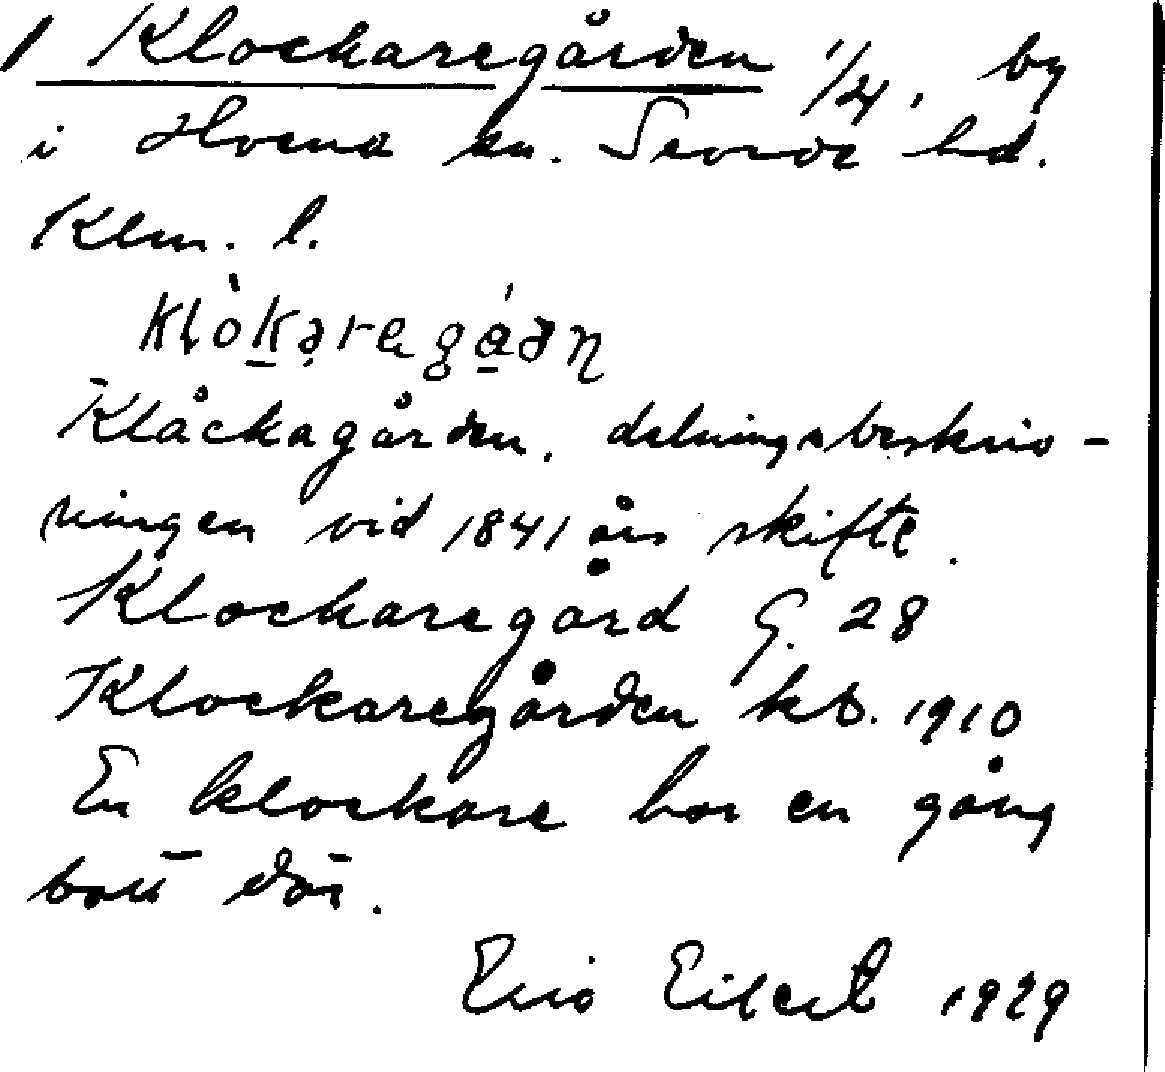 1 Klockaregården 1/4, by
i Hvena sn. Sevede hd.
Klm. l.
Klåckagården, delningsbeskriv-
ningen vid 1841 års skifte.
Klockaregård G. 28
Klockaregården kb. 1910
En klockare har en gång
bott där.
Eric Eilert 1929